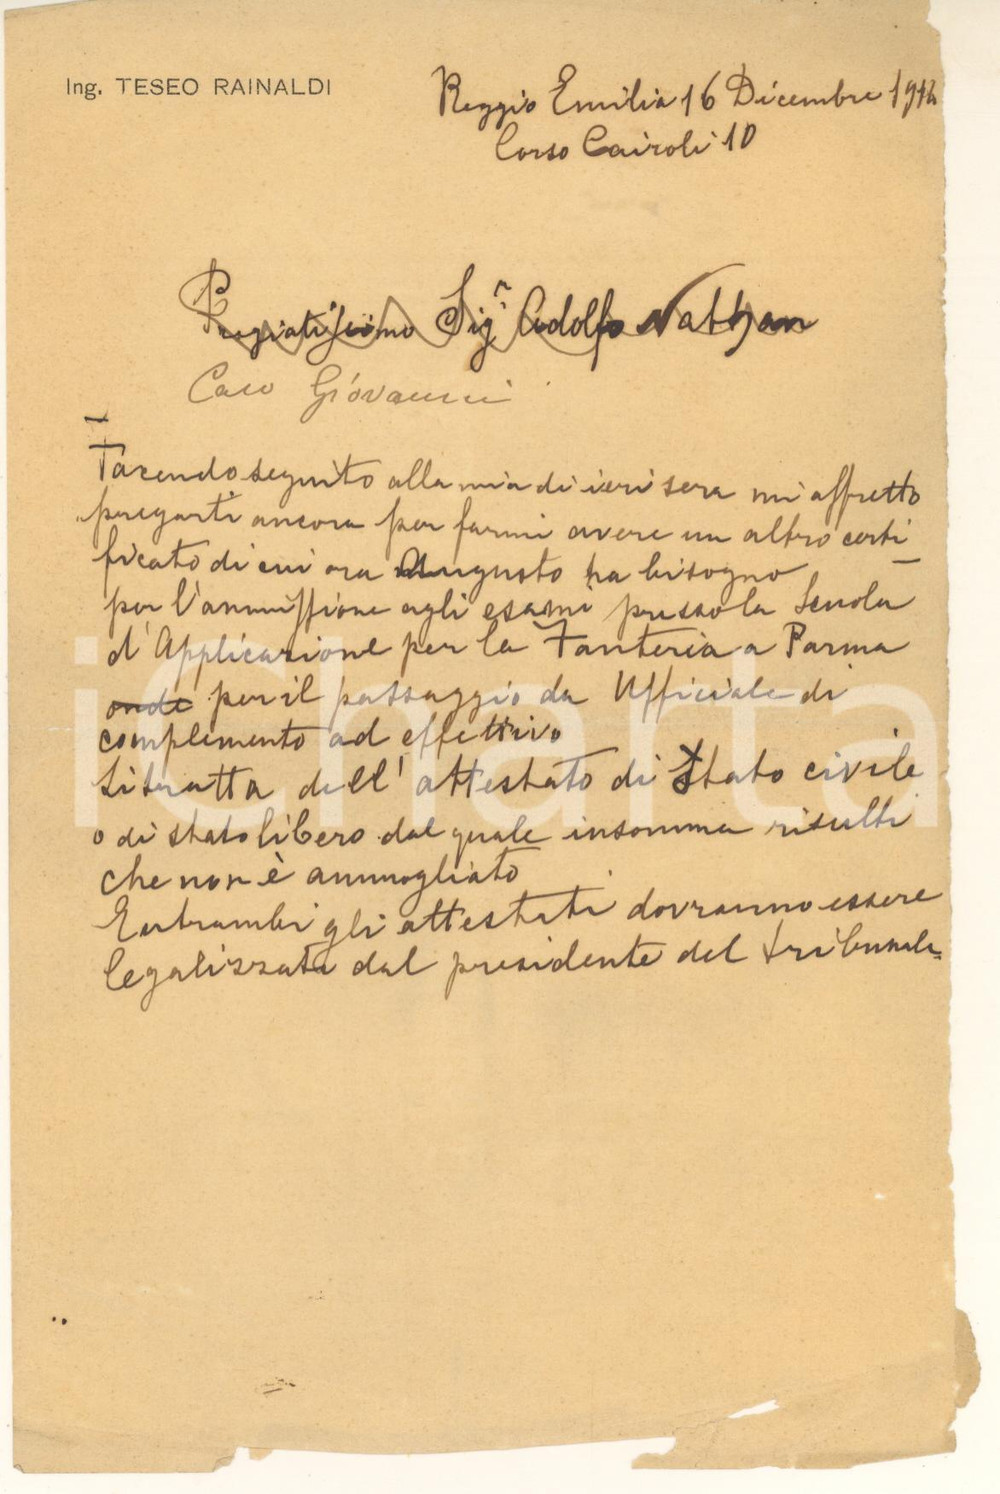 Ing. TESEO RAINALDI
Reggio Emilia 16 Dicembre
Corso Cairoli 10
Pregiatissimo Sigr Adolfo Nathan
Caro Giovanni
Facendo seguito alla mia di ieri sera mi affretto
pregarti ancora per farmi avere un altro certi
ficato di cui ora Augusto ha bisogno
per l'ammissione agli esami presso la Scuola
d'Applicazione per la Fanteria a Parma
onde per il passaggio da Ufficiale di
complemento ad effettivo
Si tratta dell'attestato di Stato civile
o di stato libero dal quale insomma risulti
che non è ammogliato
Entrambi gli attestati dovranno essere
legalizzati dal presidente del tribunale